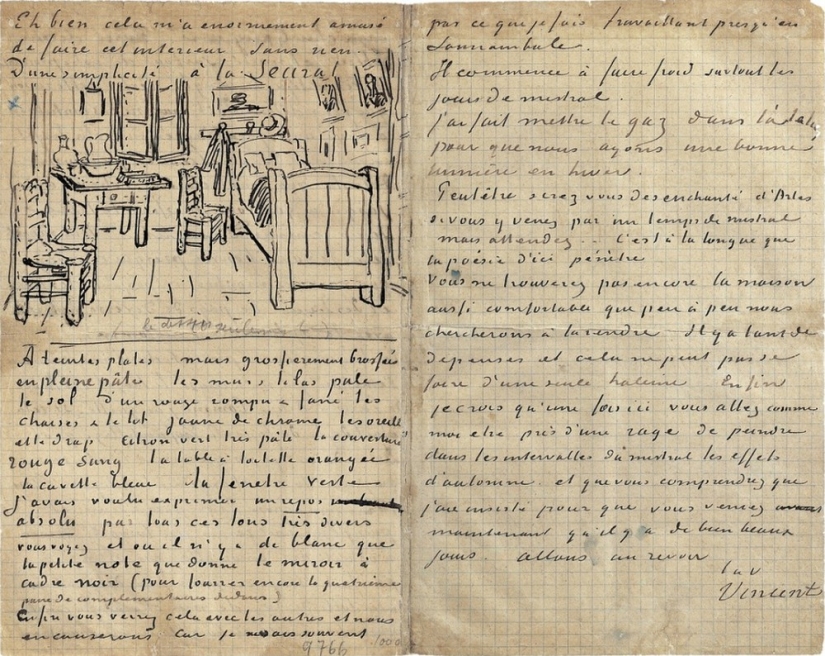 Eh bien cela m'a enormement amusé
de faire cet interieur sans rien.
D'une simplicité à la Seurat
le dessin seulement
À teintes plates mais grossierement brossée
en pleine pâte les murs lilas pale
le sol d'un rouge rompu & fané les
chaises & le lit jaune de chrome les oreille
et le drap citron vert très pâle la couverture
rouge sang la table à toilette orangée
la cuvette bleue la fenetre verte
J'avais voulu exprimer un repos
absolu par tous ces tons très divers
vous voyez et ou il n'y a de blanc que
la petite note que donne le miroir à
cadre noir (pour fourrer encore la quatrième
paire de complementaires dedans)
Enfin vous verrez cela avec les autres et nous
en causerons car je ne sais souvent
9766
pas ce que je fais travaillant presqu'en
somnambule.
Il commence à faire froid surtout les
jours de mistral.
J'ai fait mettre le gaz dans l'atelier
pour que nous ayons une bonne
lumière en hiver.
Peutêtre serez vous desenchanté d'Arles
si vous y venez par un temps de mistral
mais attendez .. C'est à la longue que
la poésie d'ici pénètre
Vous ne trouverez pas encore la maison
aussi comfortable que peu à peu nous
chercherons à la rendre Il y a tant de
depenses et cela ne peut pas se
faire d'une seule haleine Enfin
je crois qu'une fois ici vous allez comme
moi etre pris d'une rage de peindre
dans les intervalles du mistral les effets
d'automne. et que vous comprendrez que
j'aie insisté pour que vous veniez
maintenant qu'il y a de bien beaux
jours. allons au revoir
t. à v.
Vincent